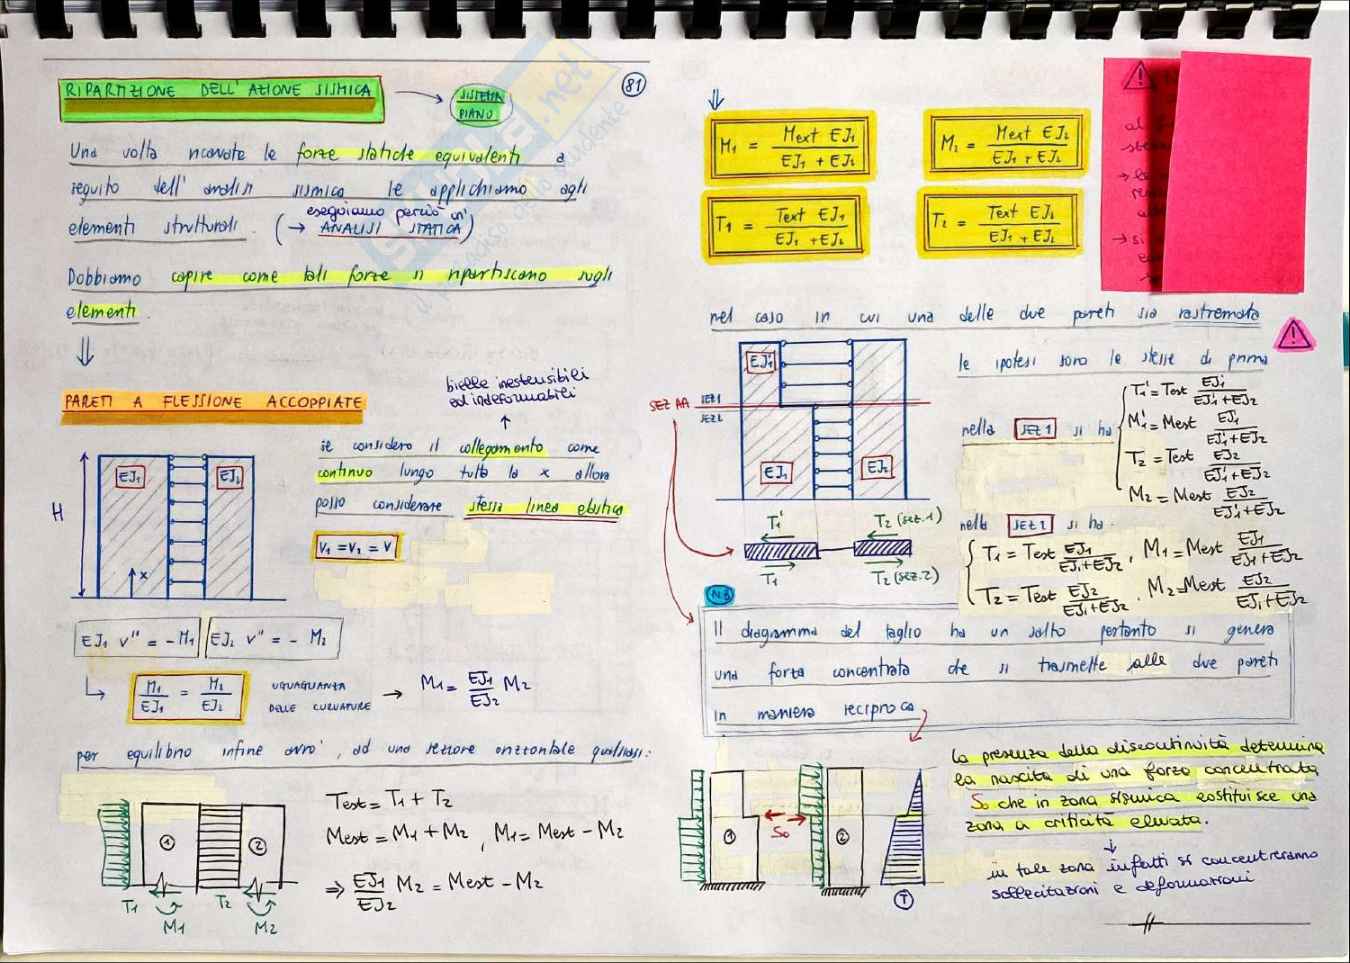 81
RIPARTIZIONE DELL'AZIONE SISMICA → SISTEMA PIANO
Una volta ricavate le forze statiche equivalenti a
seguito dell'analisi sismica le applichiamo agli
elementi strutturali. (→ eseguiamo perciò un' ANALISI STATICA)
Dobbiamo capire come tali forze si ripartiscano sugli
elementi.
⇓
PARETI A FLESSIONE ACCOPPIATE
bielle inestensibili
ed indeformabili
↑
se considero il collegamento come
continuo lungo tutta la x allora
posso considerare stessa linea elastica
V1 = V2 = V
H
EJ1
EJ2
x
EJ1 v'' = - M1
EJ2 v'' = - M2
M1/EJ1 = M2/EJ2
UGUAGLIANZA
DELLE CURVATURE
→ M1 = EJ1/EJ2 M2
per equilibrio infine avro', ad una sezione orizzontale qualsiasi:
1
2
T1
M1
T2
M2
Test = T1 + T2
Mest = M1 + M2 , M1 = Mest - M2
⇒ EJ1/EJ2 M2 = Mest - M2
⇓
M1 = Mext EJ1 / EJ1 + EJ2
M2 = Mext EJ2 / EJ1 + EJ2
T1 = Text EJ1 / EJ1 + EJ2
T2 = Text EJ2 / EJ1 + EJ2
nel caso in cui una delle due pareti sia rastremata
le ipotesi sono le stesse di prima
EJ1
SEZ AA
SEZ 1
SEZ 2
EJ1
EJ2
nella SEZ 1 si ha
T1' = Test EJ1'/EJ1'+EJ2
M1' = Mest EJ1'/EJ1'+EJ2
T2 = Test EJ2/EJ1'+EJ2
M2 = Mest EJ2/EJ1'+EJ2
nella SEZ 2 si ha
T1 = Test EJ1/EJ1+EJ2, M1 = Mest EJ1/EJ1+EJ2
T2 = Test EJ2/EJ1+EJ2. M2 = Mest EJ2/EJ1+EJ2
T1'
T2 (sez.1)
T1
T2 (sez.2)
NB
Il diagramma del taglio ha un salto pertanto si genera
una forza concentrata che si trasmette alle due pareti
in maniera reciproca
1
So
2
T
la presenza della discontinuità determina
la nascita di una forza concentrata
So che in zona sismica costituisce una
zona a criticità elevata.
↓
in tale zona infatti si concentreranno
sollecitazioni e deformazioni